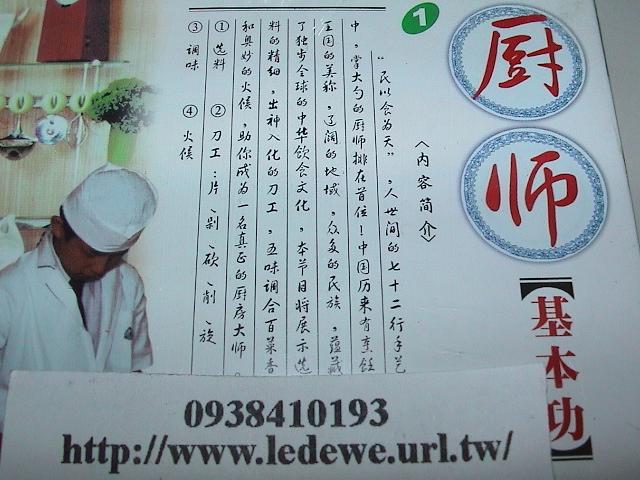 厨师
【基本功】
1
〈内容简介〉
“民以食为天”，人世间的七十二行手艺
中，掌大勺的厨师排在首位！中国历来有烹饪
王国的美称，辽阔的地域，众多的民族，蕴藏
了独步全球的中华饮食文化，本节目将展示选
料的精细，出神入化的刀工，五味调合百菜香
和奥妙的火候，助你成为一名真正的厨房大师。
① 选料 ② 刀工：片、剁、砍、削、旋
③ 调味 ④ 火候
0938410193
http://www.ledewe.url.tw/